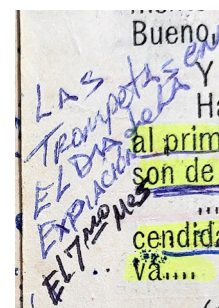 Bueno,
Y
Ha
al prim
son de
cendida
va....
LAS
Trompetas en
EL DIA de la
EXPIACIÓN
EL 7mo Mes